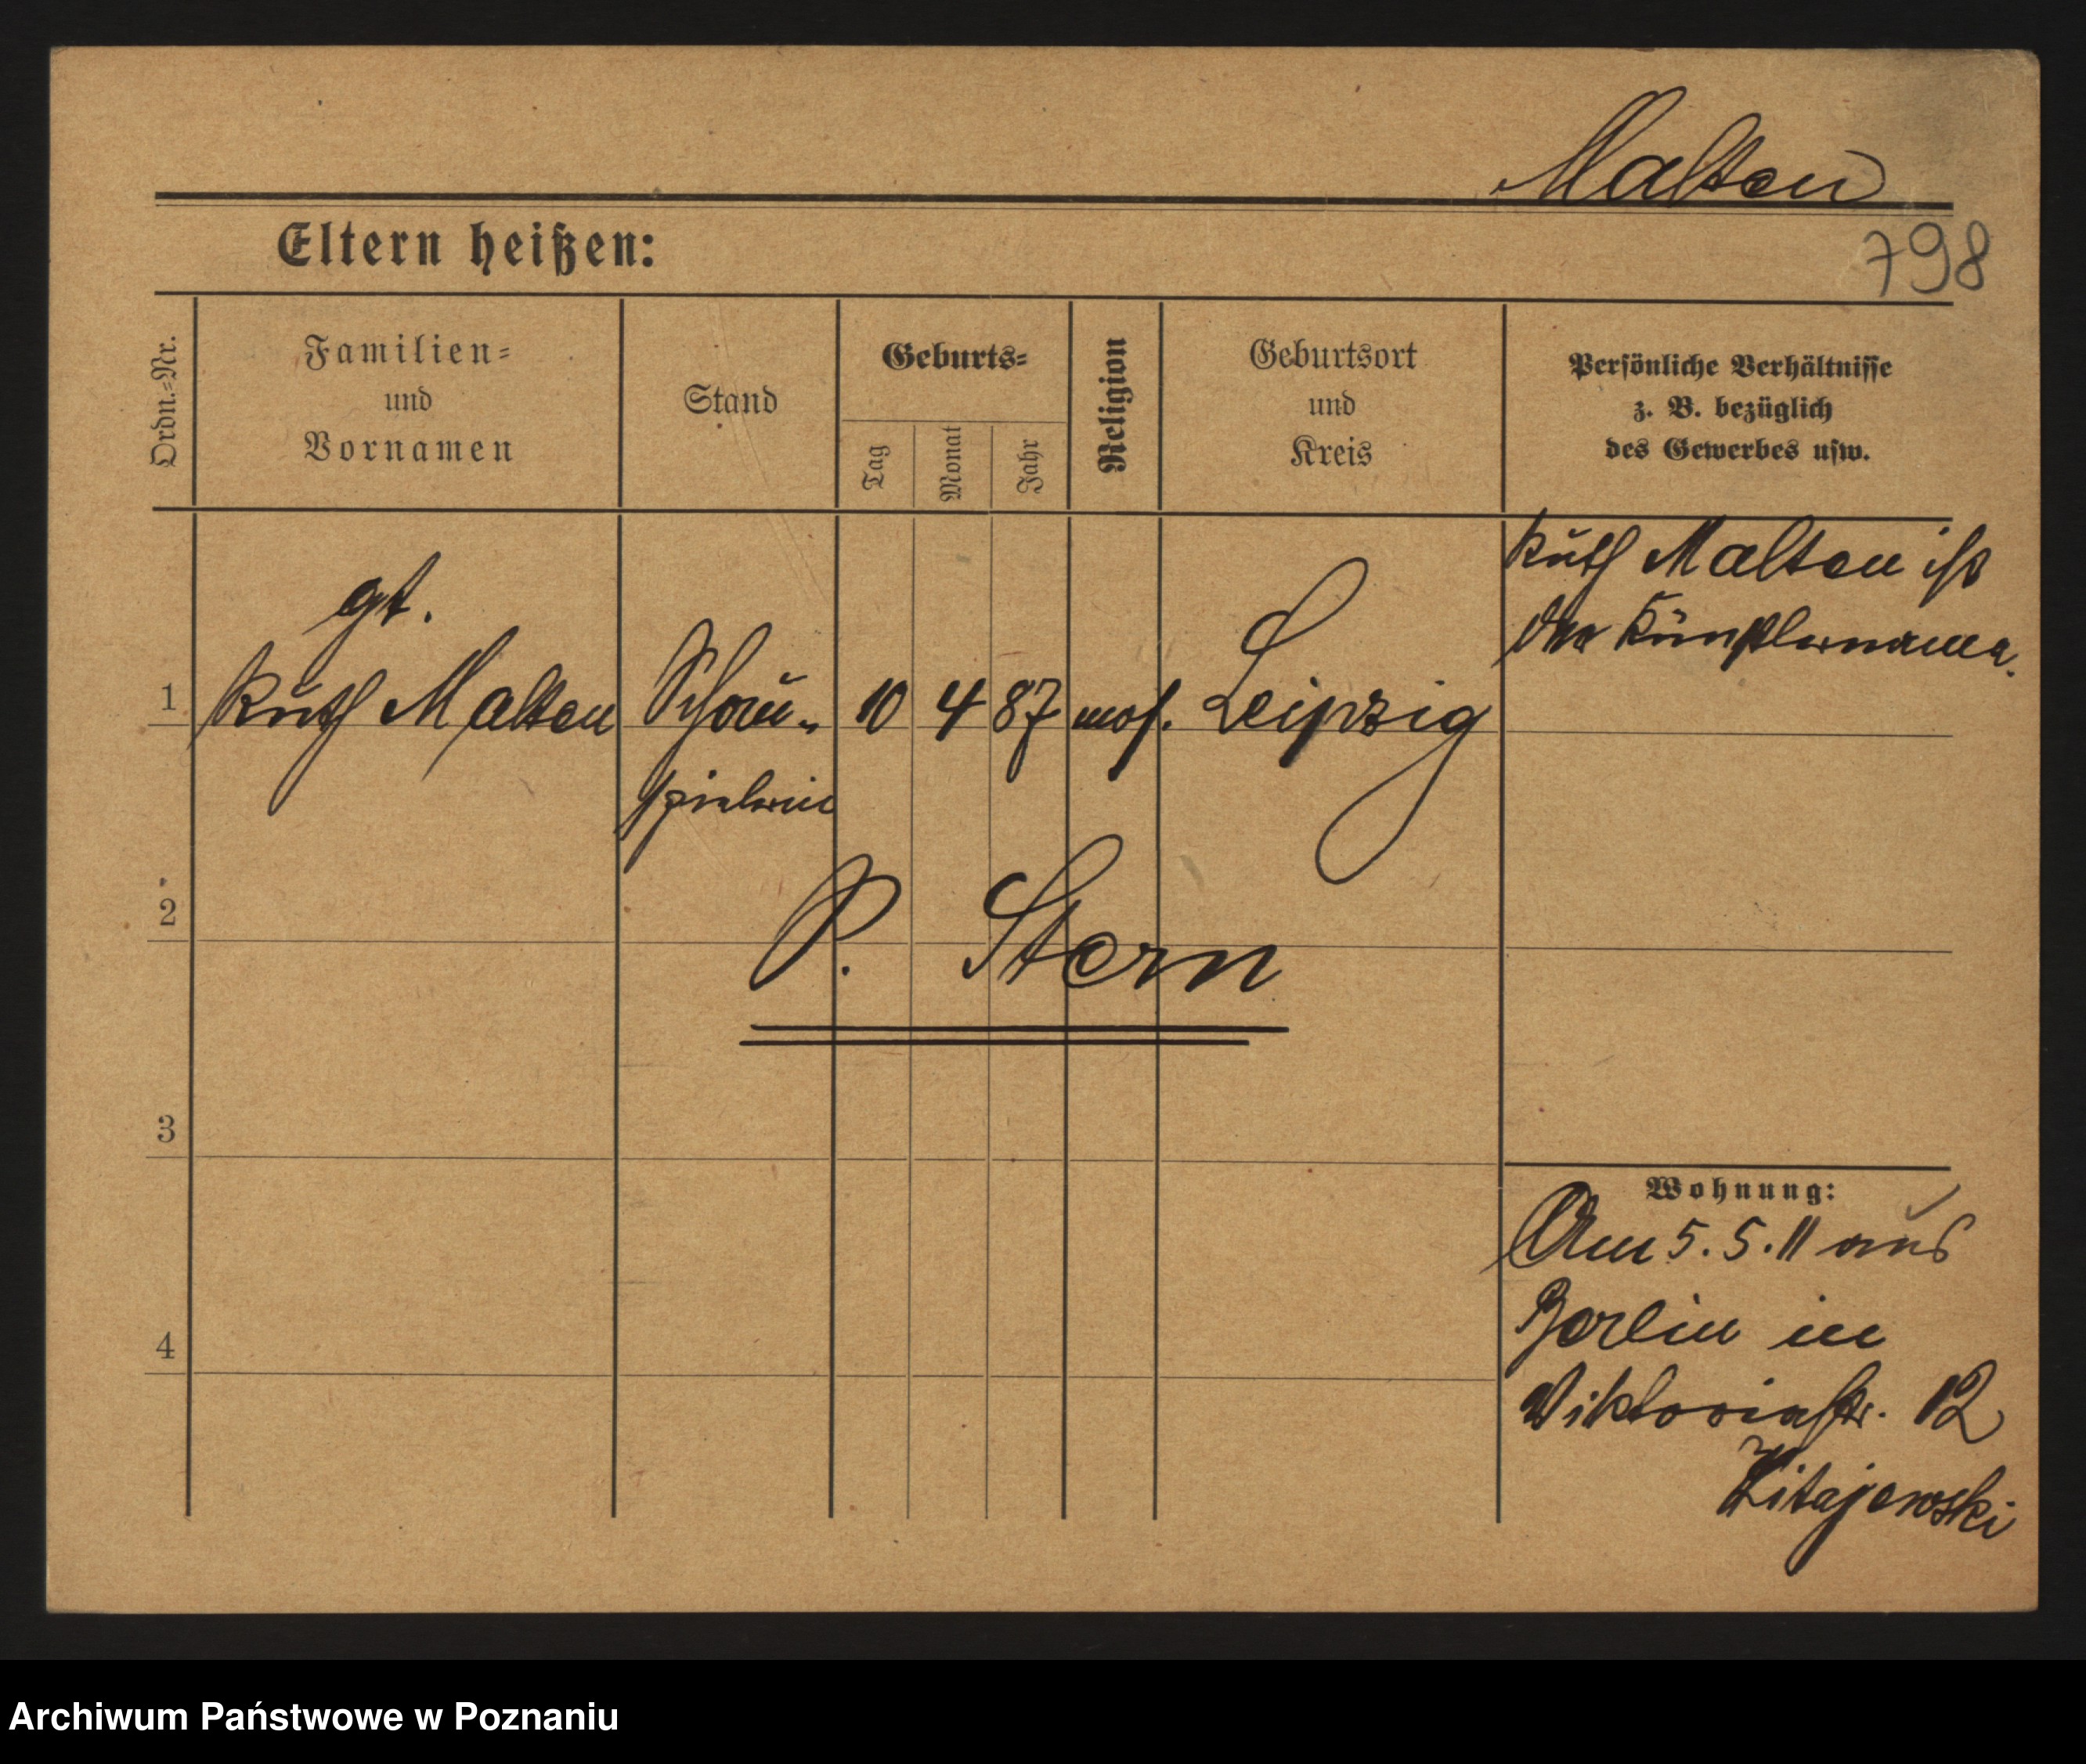 Malten
798
Eltern heißen:
Ordn.-Nr.
Familien-
und
Vornamen
Stand
Geburts-
Tag
Monat
Jahr
Religion
Geburtsort
und
Kreis
Persönliche Verhältnisse
z. B. bezüglich
des Gewerbes usw.
Ruth Malten ist
der Künstlername.
gt.
1 Ruth Malten Schau- 10 4 87 mos. Leipzig
spielerin
2
P. Stern
3
4
Wohnung:
Am 5.5.11 aus
Berlin in
Viktoriastr. 12
Kitajewski
Archiwum Państwowe w Poznaniu